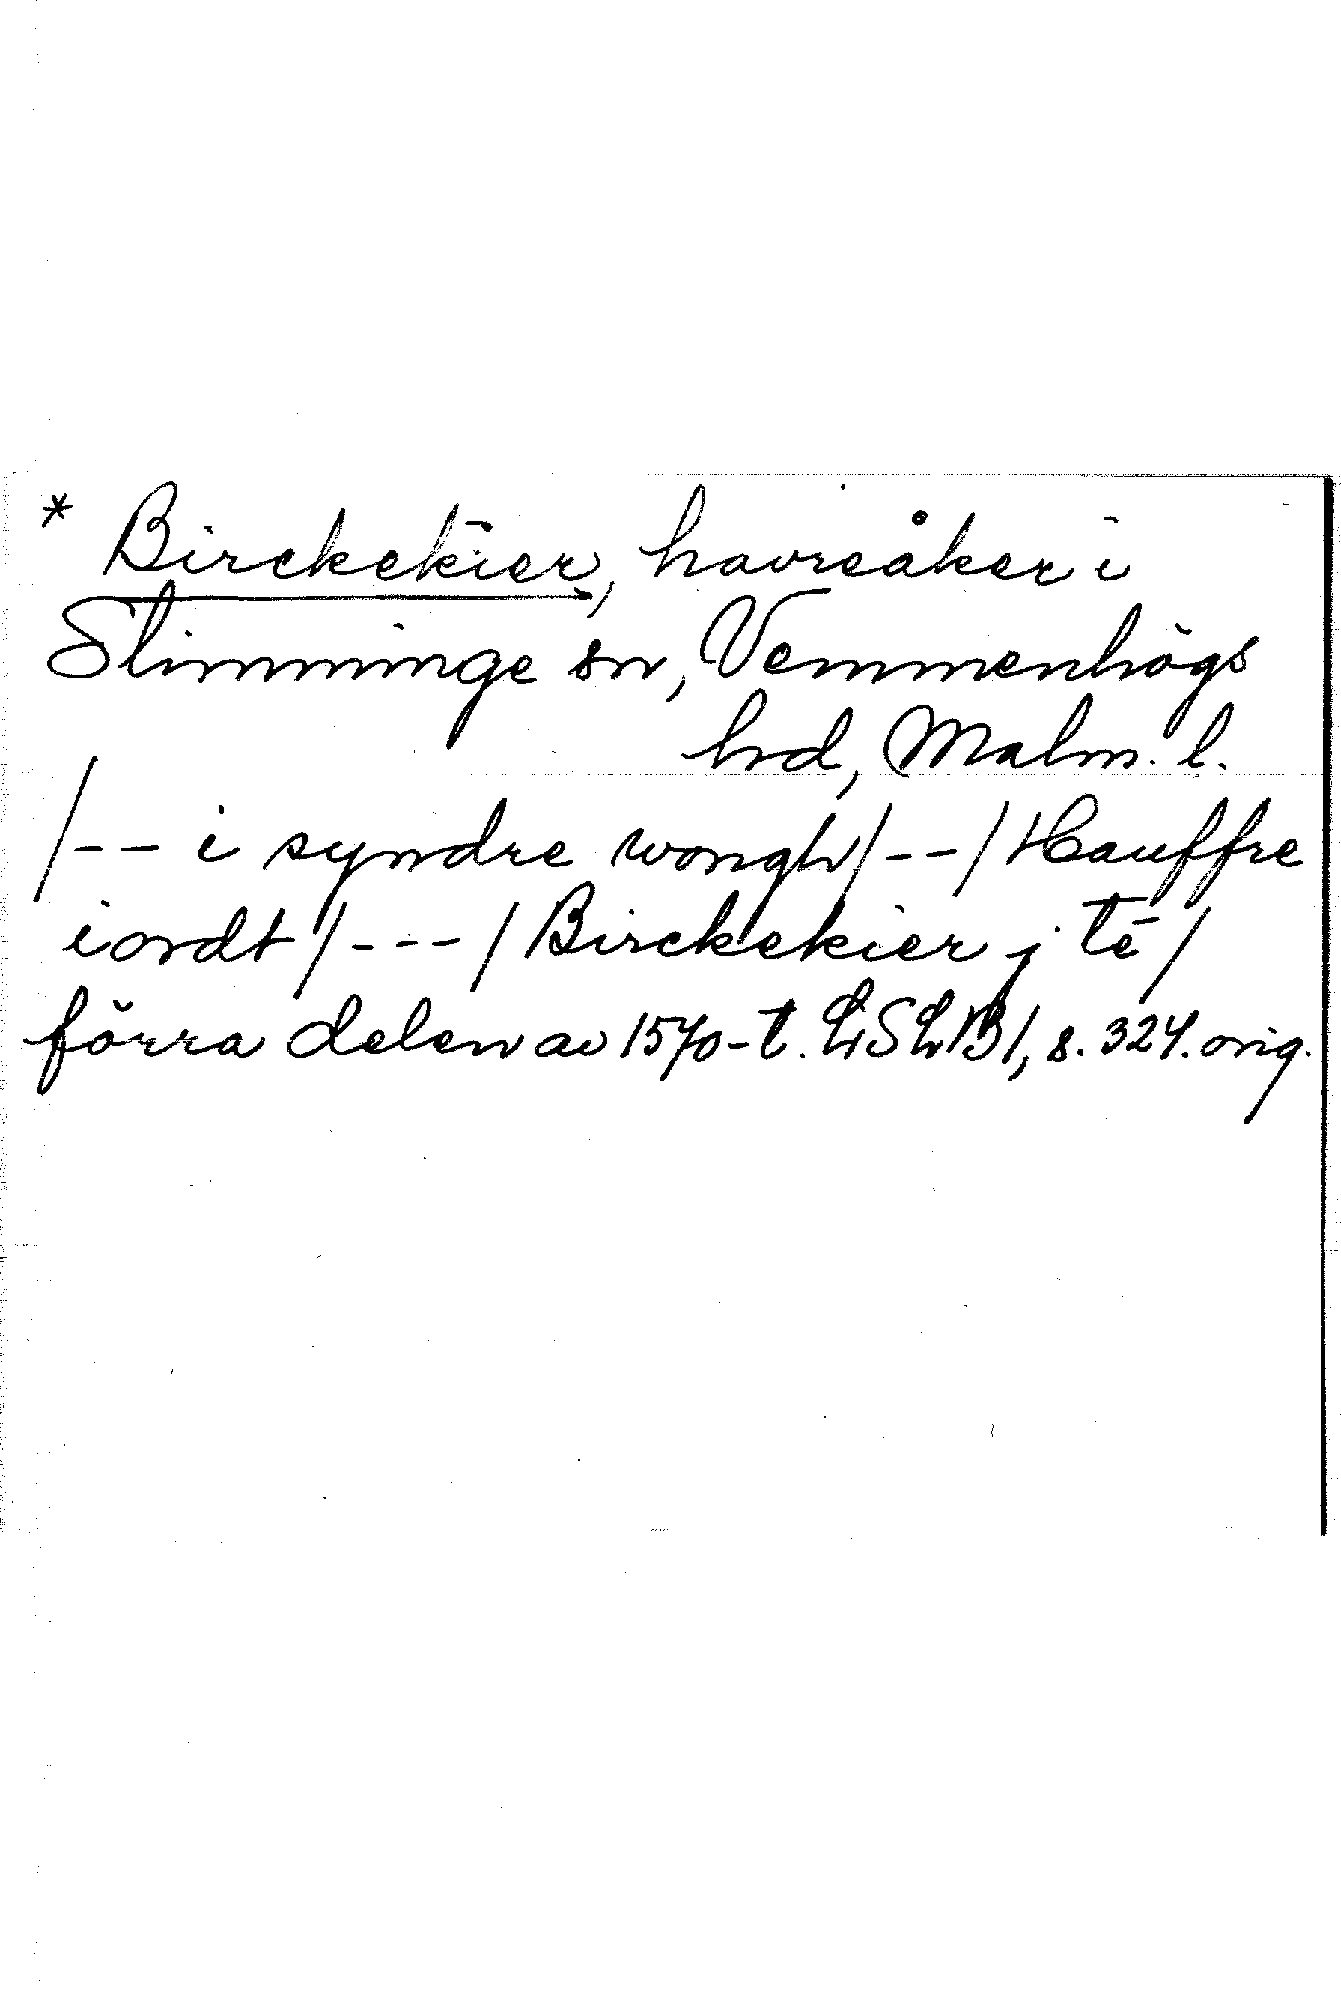 * Birckekier, havreåker i
Slimminge sn, Vemmenhögs
hrd, Malm. l.
/-- i syndre wongh/--/Hauffre
iordt/---/Birckekier j té/
förra delen av 1570-t. LiSLB1, s. 324. orig.